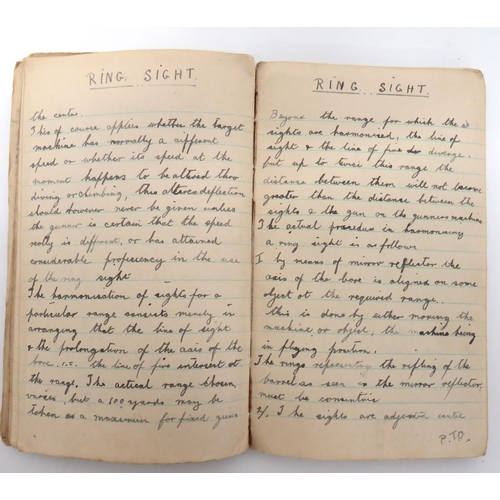 RING SIGHT.
the center.
This of course applies whether the target
machine has normally a different
speed or whether its speed at the
moment happens to be altered thro
diving or climbing, this altered deflection
should however never be given unless
the gunner is certain that the speed
really is different, or has attained
considerable proficiency in the use
of the ring sight
The harmonisation of sights for a
particular range consists merely in
arranging that the line of sight
& the prolongation of the axis of the
bore, i.e. the line of fire intersect at
the range. The actual range chosen
varies, but a 100 yards may be
taken as a maximum for fixed guns
RING SIGHT.
Beyond the range for which the
sights are harmonised, the line of
sight & the line of fire diverge.
but up to twice this range the
distance between them will not become
greater than the distance between the
sights & the gun on the gunners machine
The actual procedure in harmonising
a ring sight is as follows
I by means of mirror reflector the
axis of the bore is aligned on some
object at the required range.
this is done by either moving the
machine or object, the machine being
in flying position.
The rings representing the rifling of the
barrel as seen in the mirror reflector,
must be concentric
2/. The sights are adjusted until
P.T.O.